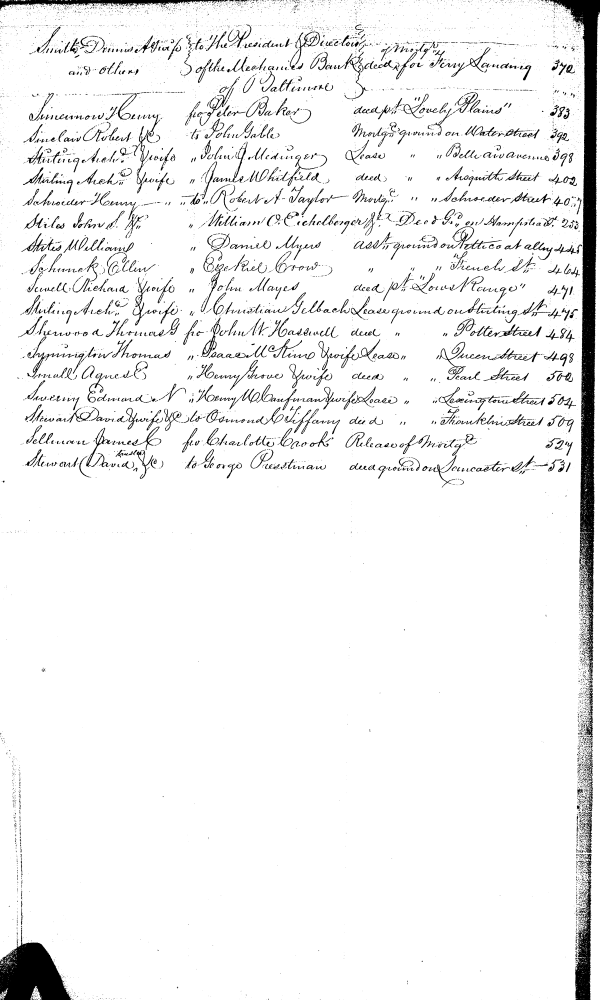 Smith, Dennis A & wife } to The President & Directors } of Mortge
and others } of the Mechanics Bank } deed for Ferry Landing 372
of Baltimore }
Simermon Henry fro Peter Baker deed pt. "Lovely Plains" 383
Sinclair Robert &c to John Gable Mortge ground on Water Street 392
Stirling Archd. & wife " John J Medinger Lease " " Bellair avenue 398
Stirling Archd. & wife " James Whitfield deed " " Aisquith Street 402
Schneider Henry " to Robert A Taylor Mortge " " Schroeder Street 407
Stiles John S " William C. Eichelberger &c Deed Gd. on Hampstead St. 253
Stites William " Daniel Myers Asst. ground on Petticoat alley 445
Schunck Ellen " Ezekiel Crow " " " French St. 464
Sewell Richard & wife " John Mayes deed pt. "Lows Range" 471
Stirling Archd. & wife " Christian Gelbach Lease ground on Stirling St. 475
Sherwood Thomas G fro John W. Hasswell deed " " Potter Street 484
Symington Thomas " Isaac McKim & wife Lease " " Queen Street 498
Small Agnes E " Henry Grove & wife deed " " Pearl Street 502
Sweeny Edward N " Henry M Caufman & wife Lease " " Lexington Street 504
Stewart David & wife &c to Osmond C Tiffany deed " " Franklin Street 509
Sellman James C fro Charlotte Crook Release of Mortge 527
Stewart (David trustee) &c to George Presstman deed ground on Lancaster St. 531